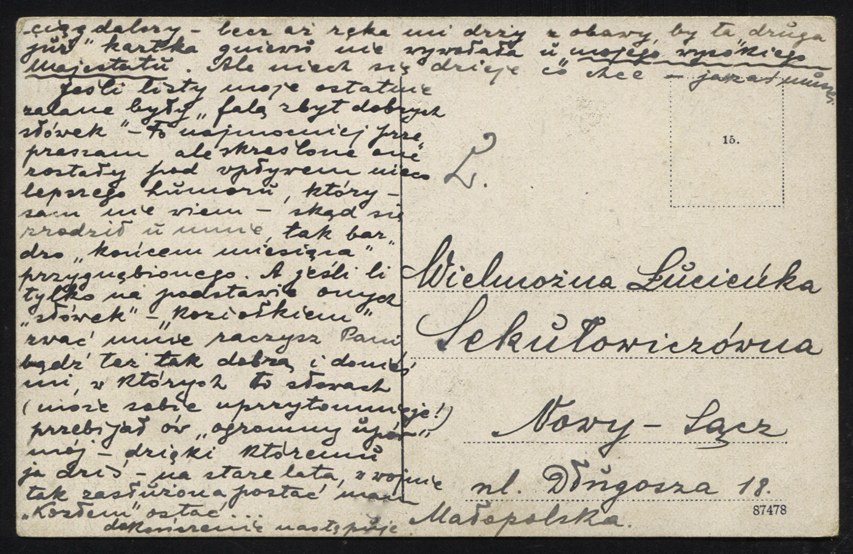 ciąg dalszy – lecz aż ręka mi drży z obawy, by ta druga
już" kartka gniewu nie wywołała u mojego wysokiego
Majestatu. Ale niech się dzieje co chce –
Jeśli listy moje ostatnie
zalane były „falą zbyt dobrych
słówek" – to najmocniej prze
praszam, ale skreślone one
zostały pod wpływem nieco
lepszego humoru, który –
sam nie wiem – skąd się
zrodził u mnie, tak bar
dzo „końcem miesiąca"
przygnębionego. A jeśli li
tylko na podstawie onych
„słówek" – „koziołkiem"
zwać mnie raczysz Pani
bądź też tak dobrą i donieś
mi, w których to słowach
(może sobie uprzytomnię!)
przebijał ów „ogromny upór"
mój – dzięki któremu
ja dziś – na stare lata, w wojnie
tak zasłużona postać mam
„Kozłem" ostać...
dokończenie następuje
15.
Ł.
Wielmożna Łucieńka
Sekułowiczówna
Nowy – Sącz
ul. Długosza 18.
Małopolska.
87478